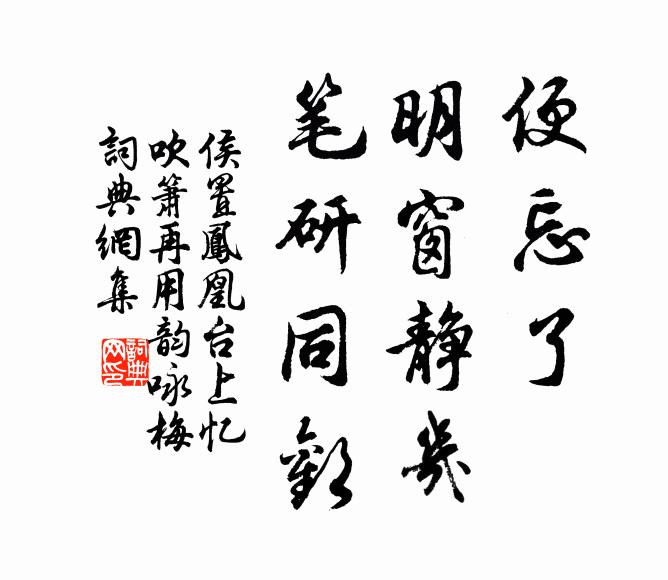 便忘了
明窗静幾
笔研同歡
侯置鳳凰台上忆
吹簫再用韵咏梅
詞典網集
詞典
网印